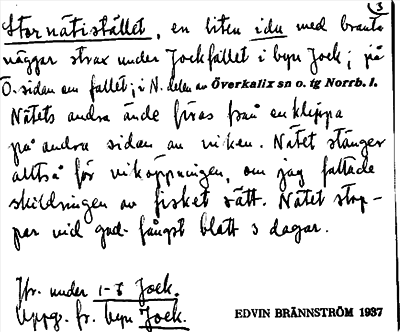 3
Stornätistället, en liten ida med branta
väggar strax under Jockfallet i byn Jock; på
Ö. sidan om fallet; i N. delen av Överkalix sn o. tg Norrb. l.
Nätets andra ände föras från en klippa
på andra sidan av viken. Nätet stänger
alltså för viköppningen, om jag fattade
skildringen av fisket rätt. Nätet stop-
par vid god fångst blott 3 dagar.
Jfr. under 1-5 Jock.
Uppg. fr. byn Jock.
EDVIN BRÄNNSTRÖM 1937